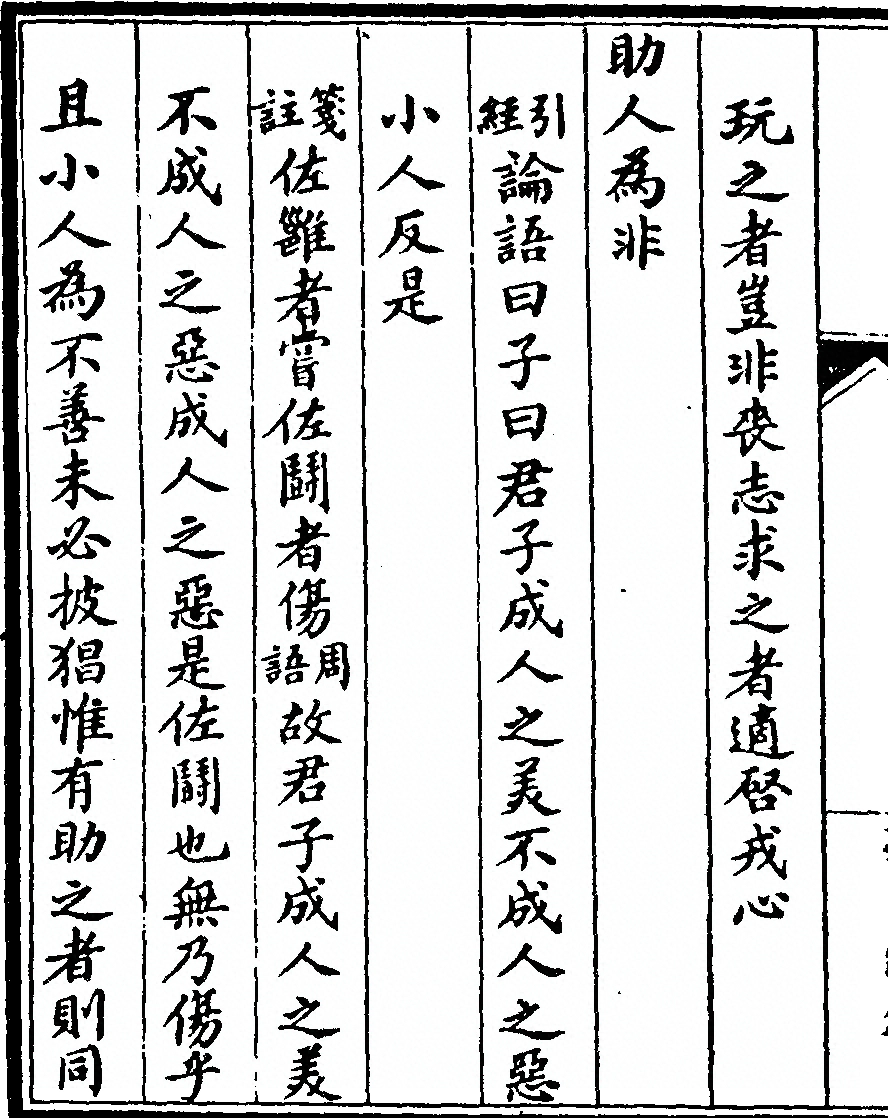 玩之者豈非喪志求之者適啓戎心
助人為非
引經論語曰子曰君子成人之美不成人之惡
小人反是
箋註佐雝者嘗佐鬭者傷周語故君子成人之美
不成人之惡成人之惡是佐鬭也無乃傷乎
且小人為不善未必披猖惟有助之者則同